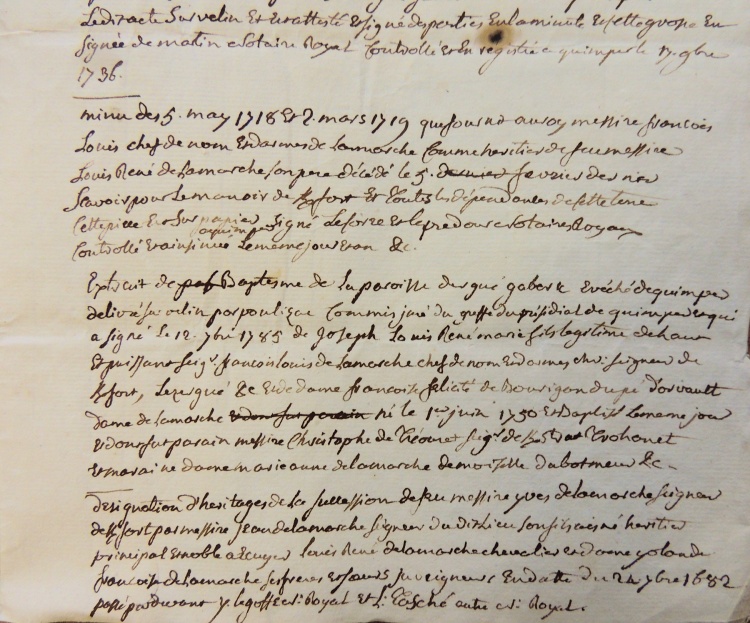 Ledit acte Sur velin Et est attesté Et signé des parties En la minute Et cette grosse En
signée de matin Notaire Royal Controllé et En registré a quimper le 17. 9bre
1736.
minu des 5. may 1718 Et 2. mars 1719 que fournit au roy messire francois
Louis chef de nom Et darmes de Lamarche Comme heritier de feu messire
Louis René de Lamarche son pere décédé le 5. fevrier dernier
Scavoir pour Le manoir de Kfort Et toutes les dépendances de cette terre
Cette piece Est Sur papier signé Le forre Et Lepredour Notaires Royaux
Controllé Et a insinué a quimper Le meme jour Et an &c.
Extrait de Baptesme de La paroisse du gué gaberic Evéché de quimper
delivré Sur velin par poulique Commis juré du greffe du présidial de quimper Et qui
a signé Le 12. 7bre 1785 de Joseph Louis René marie fils legitime de haut
Et puissant Seigr. francois louis de Lamarche chef de nom Et darmes chr. Seigneur de
Kfort, Lezergué &c Et de dame francoise félicité de Bourigan dupé d'orvault
dame de Lamarche né le 1er juin 1750 Et Baptisé Le meme jour
Et dont fut parain messire Christophe de Seigr. de Trohanet
Et maraine dame marie anne de Lamarche demoiselle du botmeur &c.
designation d'heritages de La succession de feu messire yves de Lamarche Seigneur
de Kfort par messire jean de Lamarche Seigneur du dit Lieu son fils aisné heritier
principal Et noble a Ecuyer louis René de Lamarche chevalier Et dame yolande
francoise de Lamarche ses freres Et soeurs juveigneurs En datte du 24 7bre 1682
passé par devant y. Le goff Re. Royal Et L. Tasché autre Re. Royal.